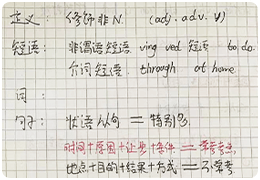 定义: 修饰非N. (adj. adv. V)
短语: 非谓语短语 ving ved 短语 to do.
介词短语. through at home
词:
句子: 状语从句 = 特别多.
时间+原因+让步+条件 = 常考点
地点+目的+结果+方式 = 不常考